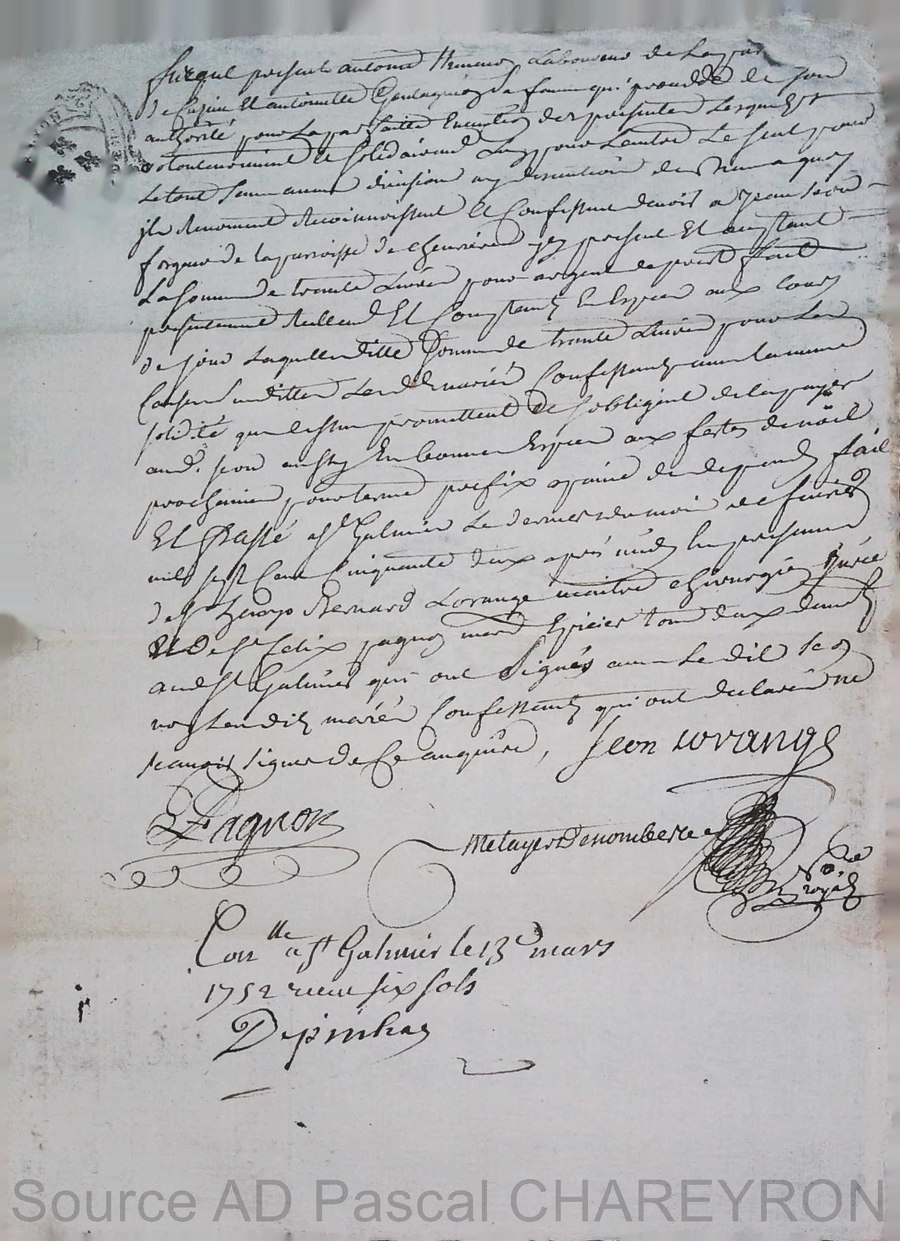 furent presents antoine laboureur de la
de Cuzieu Et antoinette sa femme qui procedde de son
authorité pour la parfaitte Execution des presentes Lesquels
volontairement Et solidairement Lun pour Lautre Le seul pour
Le tout sans aucune division ny discution de
ils Renoncent Reconnoissent Et Confessent devoir a Jean seon
de la parroisse de Chevrieres icy present Et aceptant
La somme de trante Livres pour argent de prest fait
presentement Reellement Et Comptant En Espece aux cours
de ce jour Laquelle ditte somme de trante Livres pour Les
Causes susdittes Lesd mariés Confessants avec la meme
solidité que dessus promettent Et sobligent de la payer
aud. seon aussy En bonnes Especes aux festes de noël
prochaine pour terme prefix a paine de despends fait
Et Passé a st Galmier Le dernier du mois de fevrier
mil sept Cent Cinquante deux après midy En presence
de sr Bernard Lorange maitre chirurgien Juré
Et de sr felix pagnon marchd Epicier tous deux demts
aud st Galmier qui ont signés avec Le dit seon
non Lesdits mariés Confessants qui ont declarés ne
scavoir signer de Ce Enquis, seon Lorange
Pagnon
Metayer Denombre
Nore royal
Conlle a st Galmier le 13e mars
1752 receu six sols
Depinhac
Source AD Pascal CHAREYRON